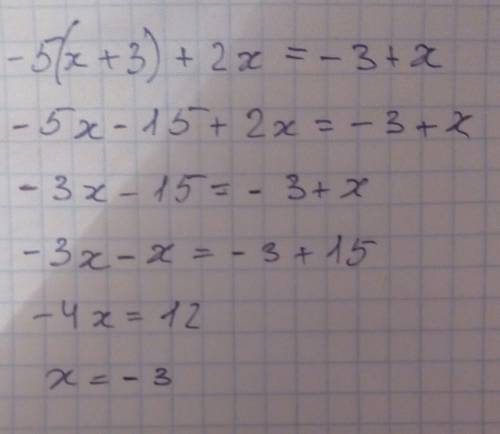 -5(x+3)+2x=-3+x
-5x-15+2x=-3+x
-3x-15=-3+x
-3x-x=-3+15
-4x=12
x=-3